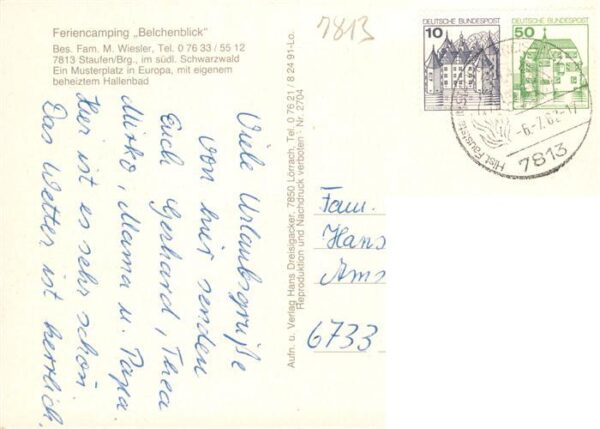 Feriencamping „Belchenblick"
Bes. Fam. M. Wiesler, Tel. 0 76 33 / 55 12
7813 Staufen/Brg., im südl. Schwarzwald
Ein Musterplatz in Europa, mit eigenem
beheiztem Hallenbad
7813
DEUTSCHE BUNDESPOST
10
DEUTSCHE BUNDESPOST
50
7813
Viele Urlaubsgrüße
von hier senden
Euch Gerhard, Thea
Mirko, Mama u. Papa.
Hier ist es sehr schön
Das Wetter ist herrlich.
Aufn. u. Verlag Hans Dreisigacker, 7850 Lörrach, Tel. 0 76 21 / 8 24 91-Lo.
Reproduktion und Nachdruck verboten · Nr. 2704
Fam.
Hans
Ams
6733